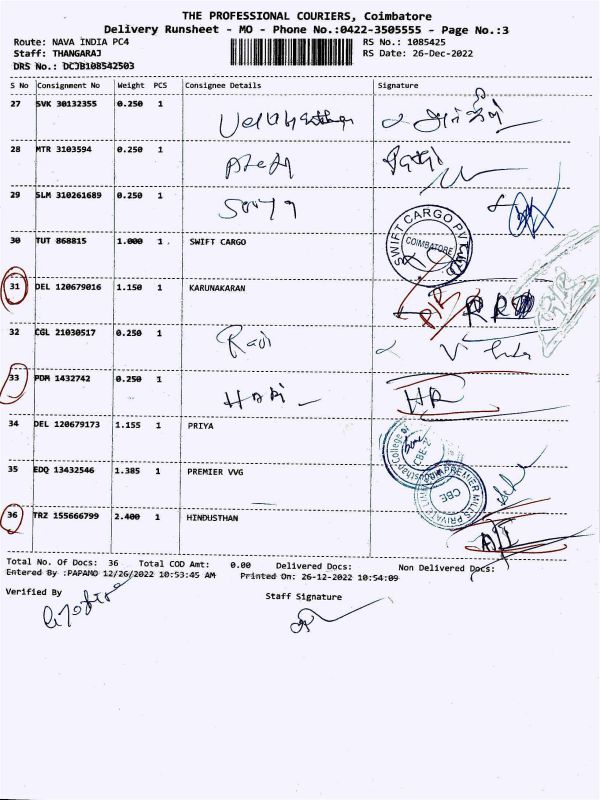 THE PROFESSIONAL COURIERS, Coimbatore
Delivery Runsheet - MO - Phone No.:0422-3505555 - Page No.:3
Route: NAVA INDIA PC4 RS No.: 1085425
Staff: THANGARAJ RS Date: 26-Dec-2022
DRS No.: DCJB108542503
S No Consignment No Weight PCS Consignee Details Signature
27 SVK 30132355 0.250 1
28 MTR 3103594 0.250 1
29 SLM 310261689 0.250 1
30 TUT 868815 1.000 1 SWIFT CARGO
SWIFT CARGO PVT LTD
COIMBATORE
31 DEL 120679016 1.150 1 KARUNAKARAN
32 CGL 21030517 0.250 1 Ravi
33 PDM 1432742 0.250 1 HARI HR
34 DEL 120679173 1.155 1 PRIYA
35 EDQ 13432546 1.385 1 PREMIER VVG
PREMIER MILES PRIVATE LIMITED
CBE
36 TRZ 155666799 2.400 1 HINDUSTHAN
Total No. Of Docs: 36 Total COD Amt: 0.00 Delivered Docs: Non Delivered Docs:
Entered By :PAPAMO 12/26/2022 10:53:45 AM Printed On: 26-12-2022 10:54:09
Verified By Staff Signature